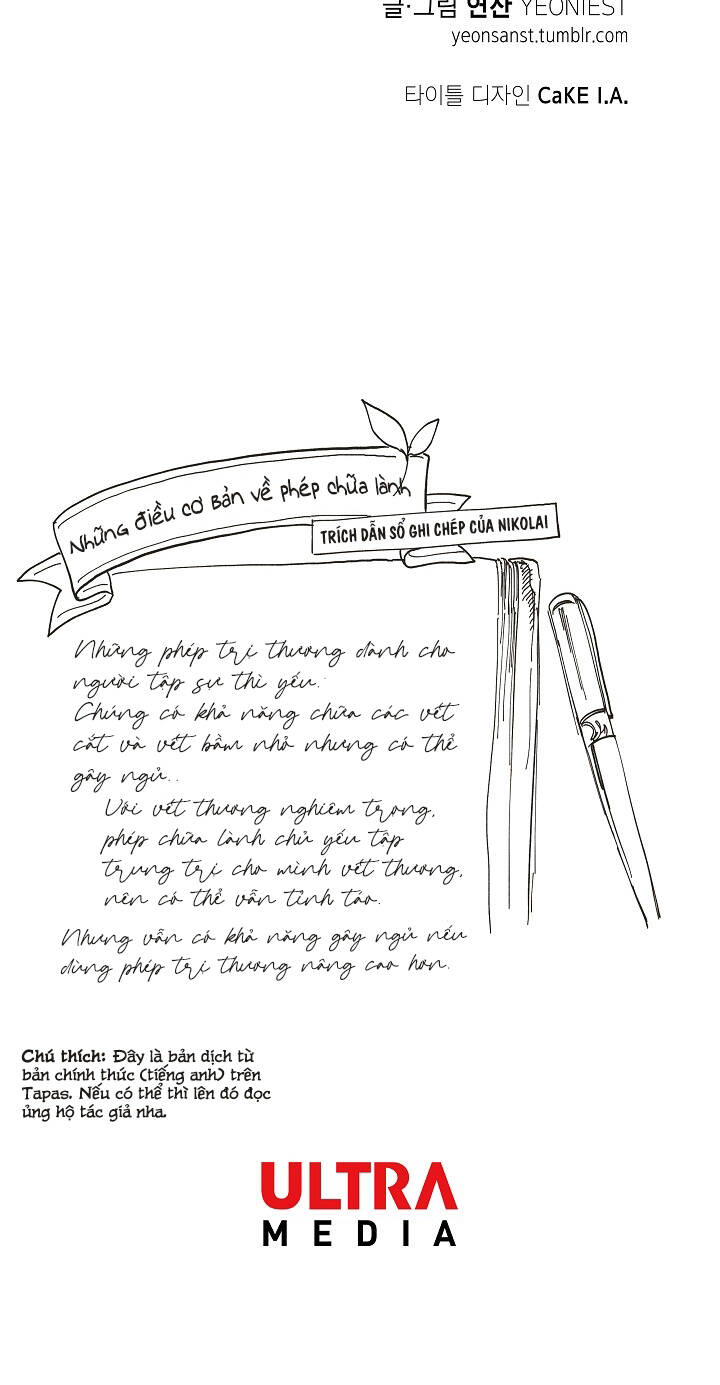 글·그림 연산 YEONIEST
yeonsanst.tumblr.com
타이틀 디자인 CaKE I.A.
Những điều cơ bản về phép chữa lành
TRÍCH DẪN SỔ GHI CHÉP CỦA NIKOLAI
Những phép trị thương dành cho
người tập sự thì yếu.
Chúng có khả năng chữa các vết
cắt và vết bầm nhỏ nhưng có thể
gây ngủ..
Với vết thương nghiêm trọng,
phép chữa lành chủ yếu tập
trung trị cho mình vết thương,
nên có thể vẫn tỉnh táo.
Nhưng vẫn có khả năng gây ngủ nếu
dùng phép trị thương nâng cao hơn.
Chú thích: Đây là bản dịch từ
bản chính thức (tiếng anh) trên
Tapas. Nếu có thể thì lên đó đọc
ủng hộ tác giả nha.
ULTRA
MEDIA